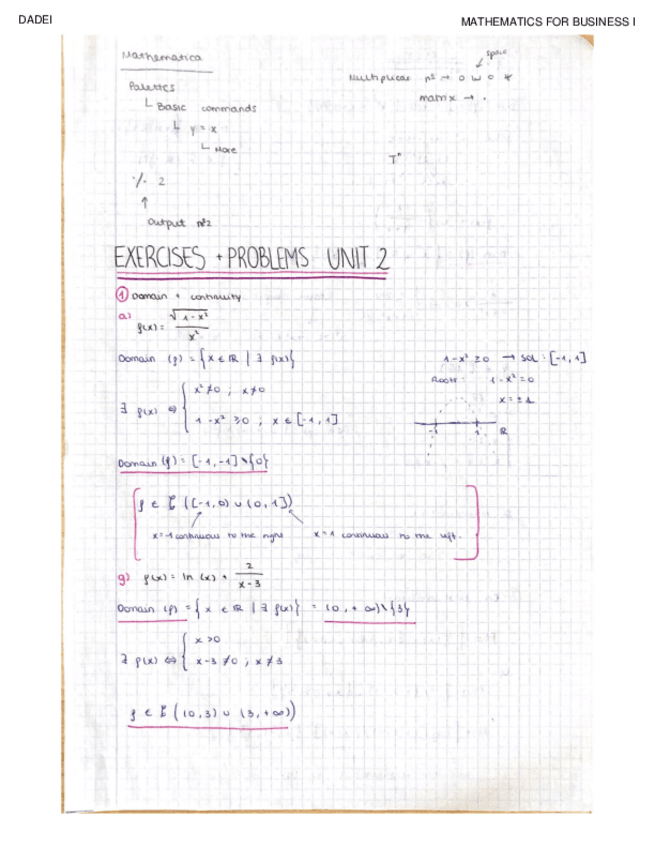 DADEI
MATHEMATICS FOR BUSINESS I
Mathematica
space
Multiplicar nº → o u o *
matrix → .
Palettes
└ Basic commands
└ y = x
└ More
Tⁿ
·/. 2
↑
Output nº2
EXERCISES + PROBLEMS UNIT 2
① Domain + continuity
a) f(x) = √(1-x²) / x²
Domain (f) = {x ∈ ℝ | ∃ f(x)}
1-x² ≥ 0 → SOL: [-1, 1]
Roots: 1-x² = 0
x = ±1
∃ f(x) ⇔ { x² ≠ 0 ; x ≠ 0
1-x² ≥ 0 ; x ∈ [-1, 1]
-1 1 ℝ
Domain (f) = [-1, -1] \ {0}
f ∈ ℭ ([-1, 0) ∪ (0, 1])
x=-1 continuous to the right x=1 continuous to the left.
g) f(x) = ln (x) + 2 / (x-3)
Domain (f) = {x ∈ ℝ | ∃ f(x)} = (0, +∞) \ {3}
∃ f(x) ⇔ { x > 0
x-3 ≠ 0 ; x ≠ 3
f ∈ ℭ ((0, 3) ∪ (3, +∞))